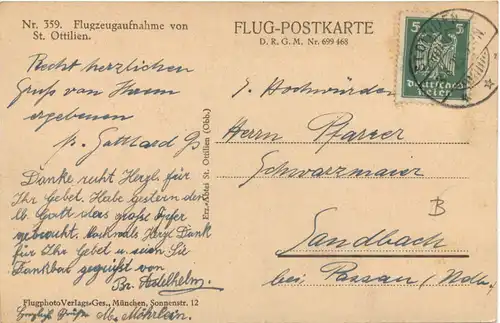 Nr. 359. Flugzeugaufnahme von
St. Ottilien.
FLUG-POSTKARTE
D. R. G. M. Nr. 699 468
5 5
Deutsches
Reich
Recht herzlichen
Gruß von Ihrem
ergebenen
p. Gotthard
Danke recht Herzl. für
Ihr Gebet. Habe Gestern der
lb. Gott das große Opfer
gebracht. Nochmals Herzl. Dank
für Ihr Gebet u seien Sie
Dankbar gegrüßt von
Br. Adelhelm.
FlugphotoVerlags-Ges., München, Sonnenstr. 12
Grüße M. Möhrlein.
Erz-Abtei St. Ottilien (Obb.)
S. Hochwürden
Herrn Pfarrer
Schwarzmaier
B
Sandbach
bei Passau (Ndb.)